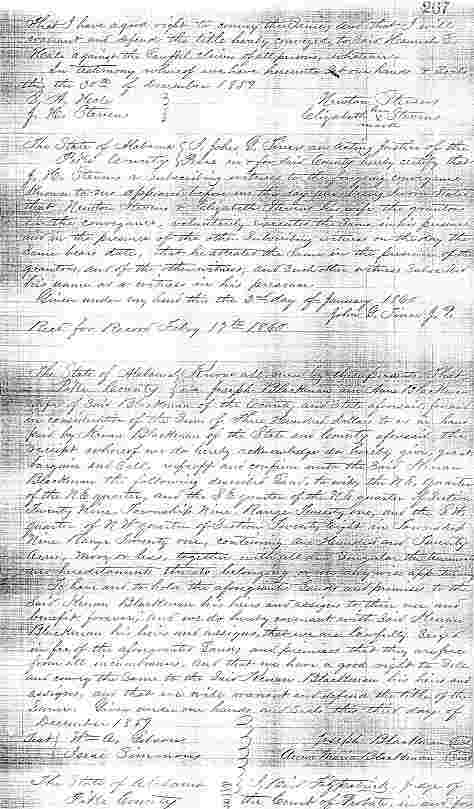 237
that I have a good right to convey the same, and that I will
warrant and defend the title hereby conveyed, to said
Neale against the lawful claims of all persons whatever.
In testimony whereof we have hereunto set our hands & seals
this the 30th of December 1859
Neale Newton Stevens
J. H. Stevens Elizabeth her x mark Stevens
The State of Alabama I, John G. Tiner an acting Justice of the
Pike County Peace in & for said County hereby certify that
J. H. Stevens a subscribing witness to the foregoing conveyance
known to me appeared before me this day and being sworn stated
that Newton Stevens & Elizabeth Stevens his wife the grantors
in the conveyance, voluntarily executed the same in his presence
and in the presence of the other subscribing witness on the day the
same bears date, that he attested the same in the presence of the
grantors, and of the other witness, and such other witness subscribed
his name as a witness in his presence
Given under my hand this the 2nd day of January 1860
John G. Tiner J. P.
Recd for Record Feby 17th 1860
The State of Alabama Know all men by these presents that
Pike County we Joseph Blackman and Ann Blackman
wife of said Blackman of the County and State aforesaid, for and
in consideration of the sum of Three Hundred dollars to us in hand
paid by Kenan Blackman of the State and County aforesaid, the
receipt whereof we do hereby acknowledge do hereby give, grant
bargain and sell, enfeoff and confirm unto the said Kenan
Blackman the following described land, to wit, the N.E. quarter
of the N.E. quarter, and the S.E. quarter of the N.E. quarter of Section
Twenty Nine Township Nine Range Twenty one, and the S.W.
quarter of N.W. quarter of Section Twenty Eight in Township
Nine Range Twenty one, containing one Hundred and Twenty
Acres, more or less, together with all and singular the tenements
and hereditaments thereto belonging or in anywise appertaining
To have and to hold the aforegranted lands and premises to the
said Kenan Blackman his heirs and assigns to their use and
benefit forever, and we do hereby covenant with said Kenan
Blackman his heirs and assigns, that we are lawfully seized
in fee of the aforegranted lands and premises that they are free
from all incumbrances, and that we have a good right to sell
and convey the same to the said Kenan Blackman his heirs and
assigns, and that we will warrant and defend the title of the
same. Given under our hands and seals this third day of
December 1859
Test Wm Joseph Blackman
Isaac Simmons Blackman
The State of Alabama I Bird Fitzpatrick, Judge of
Pike County the Court of Probate in and